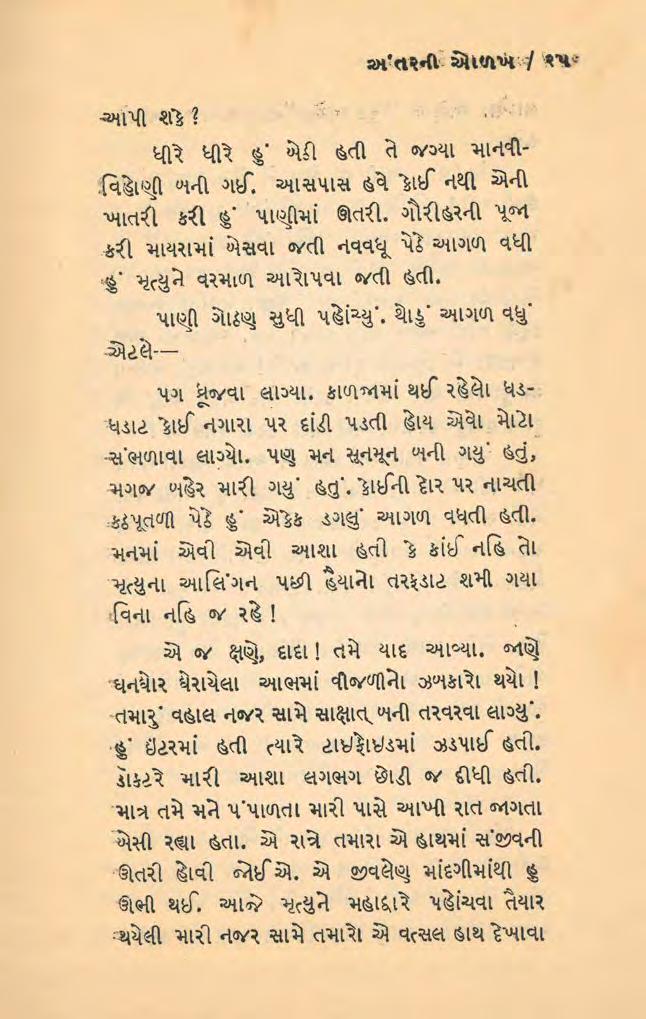 અંતરની ઓળખ / ૨૫
આપી શકે ?
ધીરે ધીરે હું બેઠી હતી તે જગ્યા માનવી-
વિહોણી બની ગઈ. આસપાસ હવે કોઈ નથી એની
ખાતરી કરી હું પાણીમાં ઊતરી. ગૌરીહરની પૂજા
કરી માયરામાં બેસવા જતી નવવધૂ પેઠે આગળ વધી
હું મૃત્યુને વરમાળ આરોપવા જતી હતી.
પાણી ગોઠણ સુધી પહોંચ્યું. થોડું આગળ વધું
એટલે—
પગ ધ્રૂજવા લાગ્યા. કાળજામાં થઈ રહેલો ધડ-
ધડાટ કોઈ નગારા પર દાંડી પડતી હોય એવો મોટો
સંભળાવા લાગ્યો. પણ મન સૂનમૂન બની ગયું હતું,
મગજ બહેર મારી ગયું હતું. કોઈની દોર પર નાચતી
કઠપૂતળી પેઠે હું એકેક ડગલું આગળ વધતી હતી.
મનમાં એવી એવી આશા હતી કે કાંઈ નહિ તો
મૃત્યુના આલિંગન પછી હૈયાનો તરફડાટ શમી ગયા
વિના નહિ જ રહે !
એ જ ક્ષણે, દાદા ! તમે યાદ આવ્યા. જાણે
ઘનઘોર ઘેરાયેલા આભમાં વીજળીનો ઝબકારો થયો !
તમારું વહાલ નજર સામે સાક્ષાત્ બની તરવરવા લાગ્યું.
હું ઇંટરમાં હતી ત્યારે ટાઇફોઇડમાં ઝડપાઈ હતી.
ડૉક્ટરે મારી આશા લગભગ છોડી જ દીધી હતી.
માત્ર તમે મને પંપાળતા મારી પાસે આખી રાત જાગતા
બેસી રહ્યા હતા. એ રાત્રે તમારા એ હાથમાં સંજીવની
ઊતરી હોવી જોઈએ. એ જીવલેણ માંદગીમાંથી હુ
ઊભી થઈ. આજે મૃત્યુને મહાદ્વારે પહોંચવા તૈયાર
થયેલી મારી નજર સામે તમારો એ વત્સલ હાથ દેખાવા